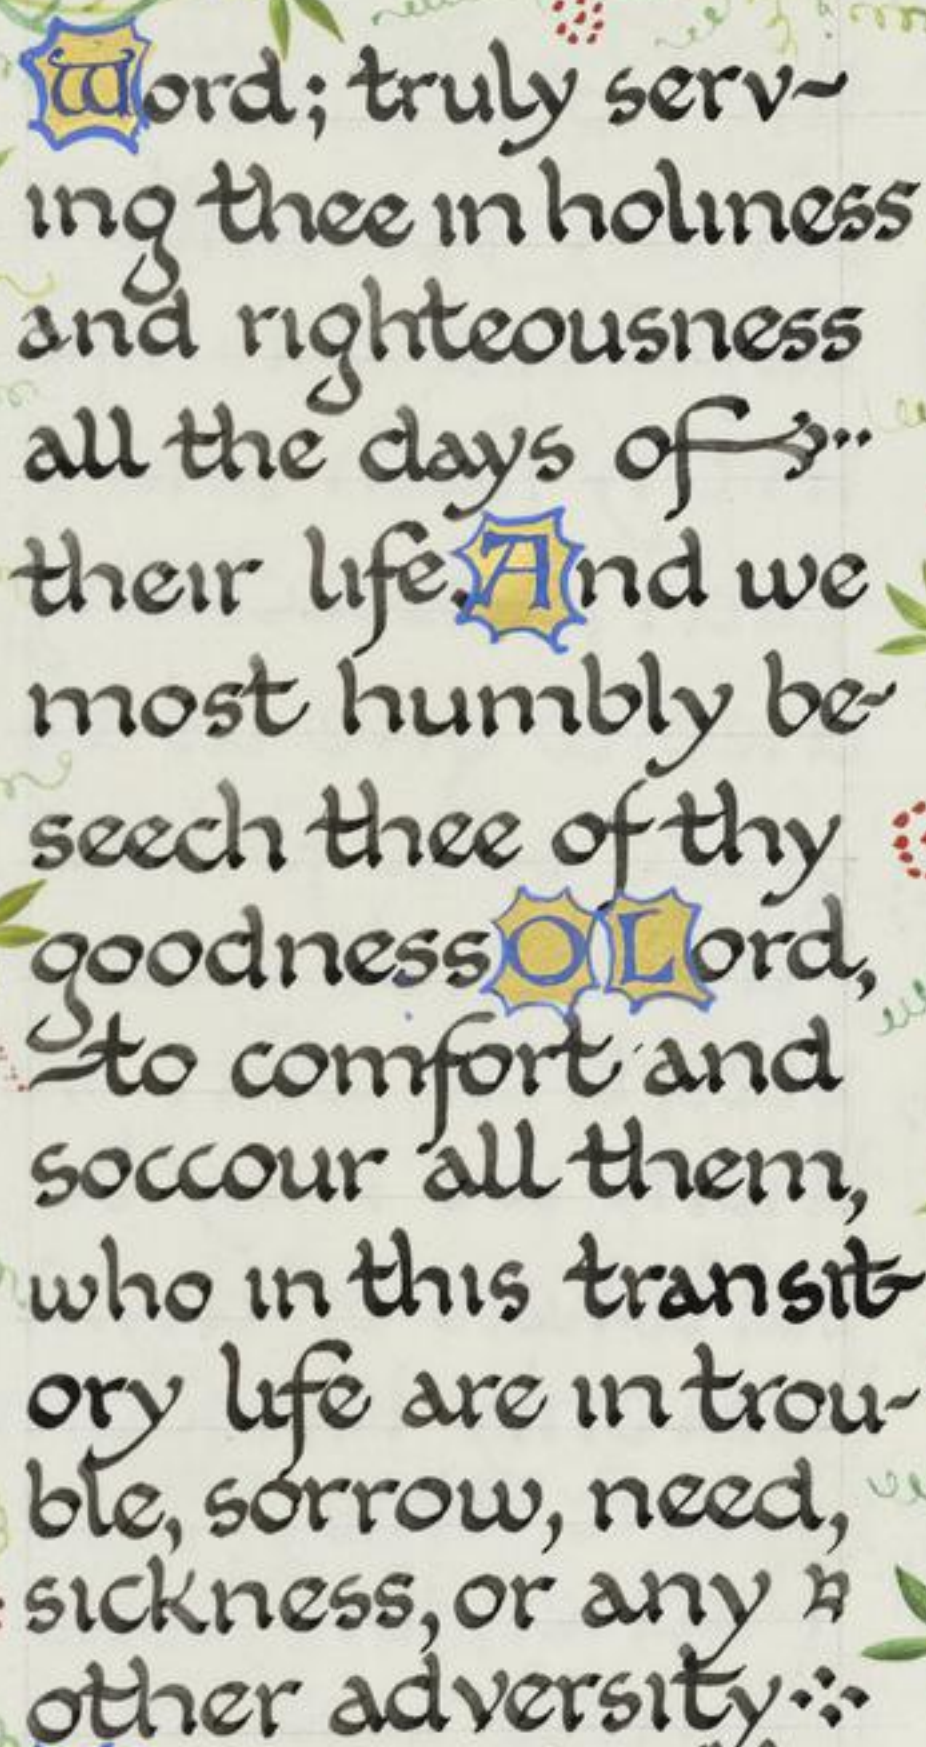 Word; truly serv~
ing thee in holiness
and righteousness
all the days of
their life. And we
most humbly be-
seech thee of thy
goodness O Lord,
to comfort and
soccour all them,
who in this transit-
ory life are in trou-
ble, sorrow, need,
sickness, or any
other adversity